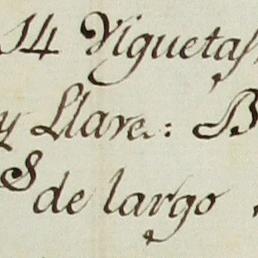 14 Viguetas
y Llave: B
s de largo